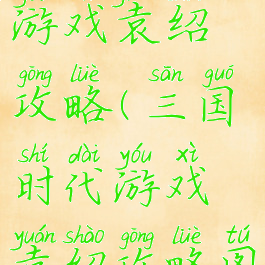 游戏袁绍
gōng lüè sān guó
攻略(三国
shí dài yóu xì
时代游戏
yuán shào gōng lüè tú
袁绍攻略图